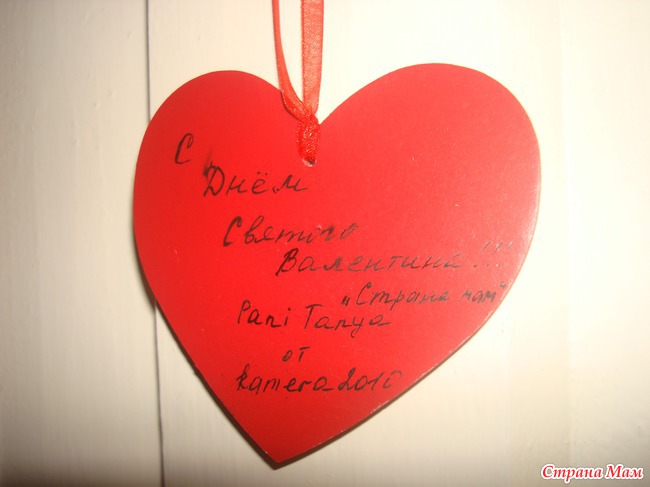 С
Днём
Святого
Валентина!!!
"Страна мам"
Pani Tanya
от
kamera2010
Страна Мам